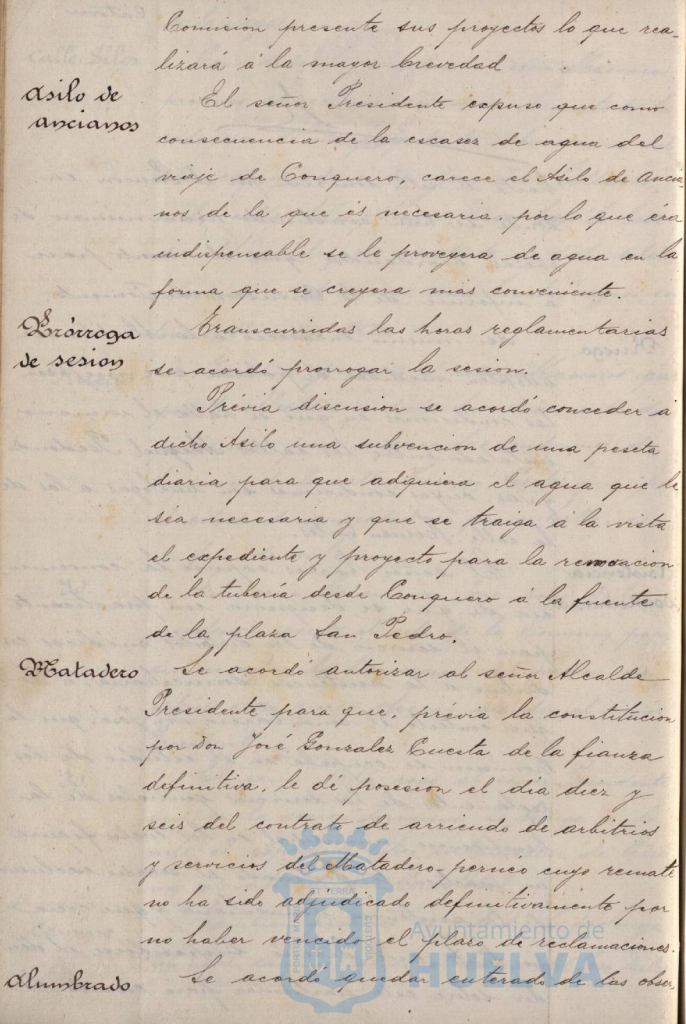 Comision presente sus proyectos lo que rea-
lizará á la mayor brevedad.
Asilo de
ancianos
El señor Presidente expuso que como
consecuencia de la escasez de agua del
viaje de Conquero, carece el Asilo de Ancia-
nos de la que és necesaria, por lo que éra
indispensable se le proveyera de agua en la
forma que se creyera mas conveniente.
Prórroga
de sesion
Transcurridas las horas reglamentarias
se acordó prorrogar la sesion.
Prévia discusion se acordó conceder á
dicho Asilo una subvencion de una peseta
diaria para que adquiera el agua que le
séa necesaria y que se traiga á la vista
el expediente y proyecto para la renovacion
de la tubería desde Conquero á la fuente
de la plaza San Pedro.
Matadero
Se acordó autorizar al señor Alcalde
Presidente para que, prévia la constitucion
por Don José Gonzalez Cuesta de la fianza
definitiva, le dé posesion el dia diez y
seis del contrato de arriendo de arbitrios
y servicios del Matadero-pernéo cuyo remate
no ha sido adjudicado definitivamente por
no haber vencido el plazo de reclamaciones.
Alumbrado
Se acordó quedar enterado de las obser-
Ayuntamiento de
HUELVA